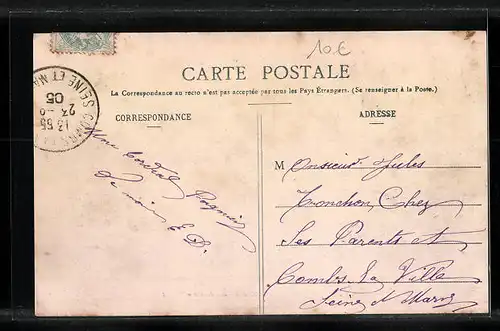 10 €
CARTE POSTALE
La Correspondance au recto n'est pas acceptée par tous les Pays Étrangers. (Se renseigner à la Poste.)
CORRESPONDANCE
ADRESSE
SEINE ET M
13 55
23
05
Une cordiale Poignée
de main E. D.
Monsieur Jules
Tonchon, Chez
Ses Parents et
Combs La Ville
Seine et Marne